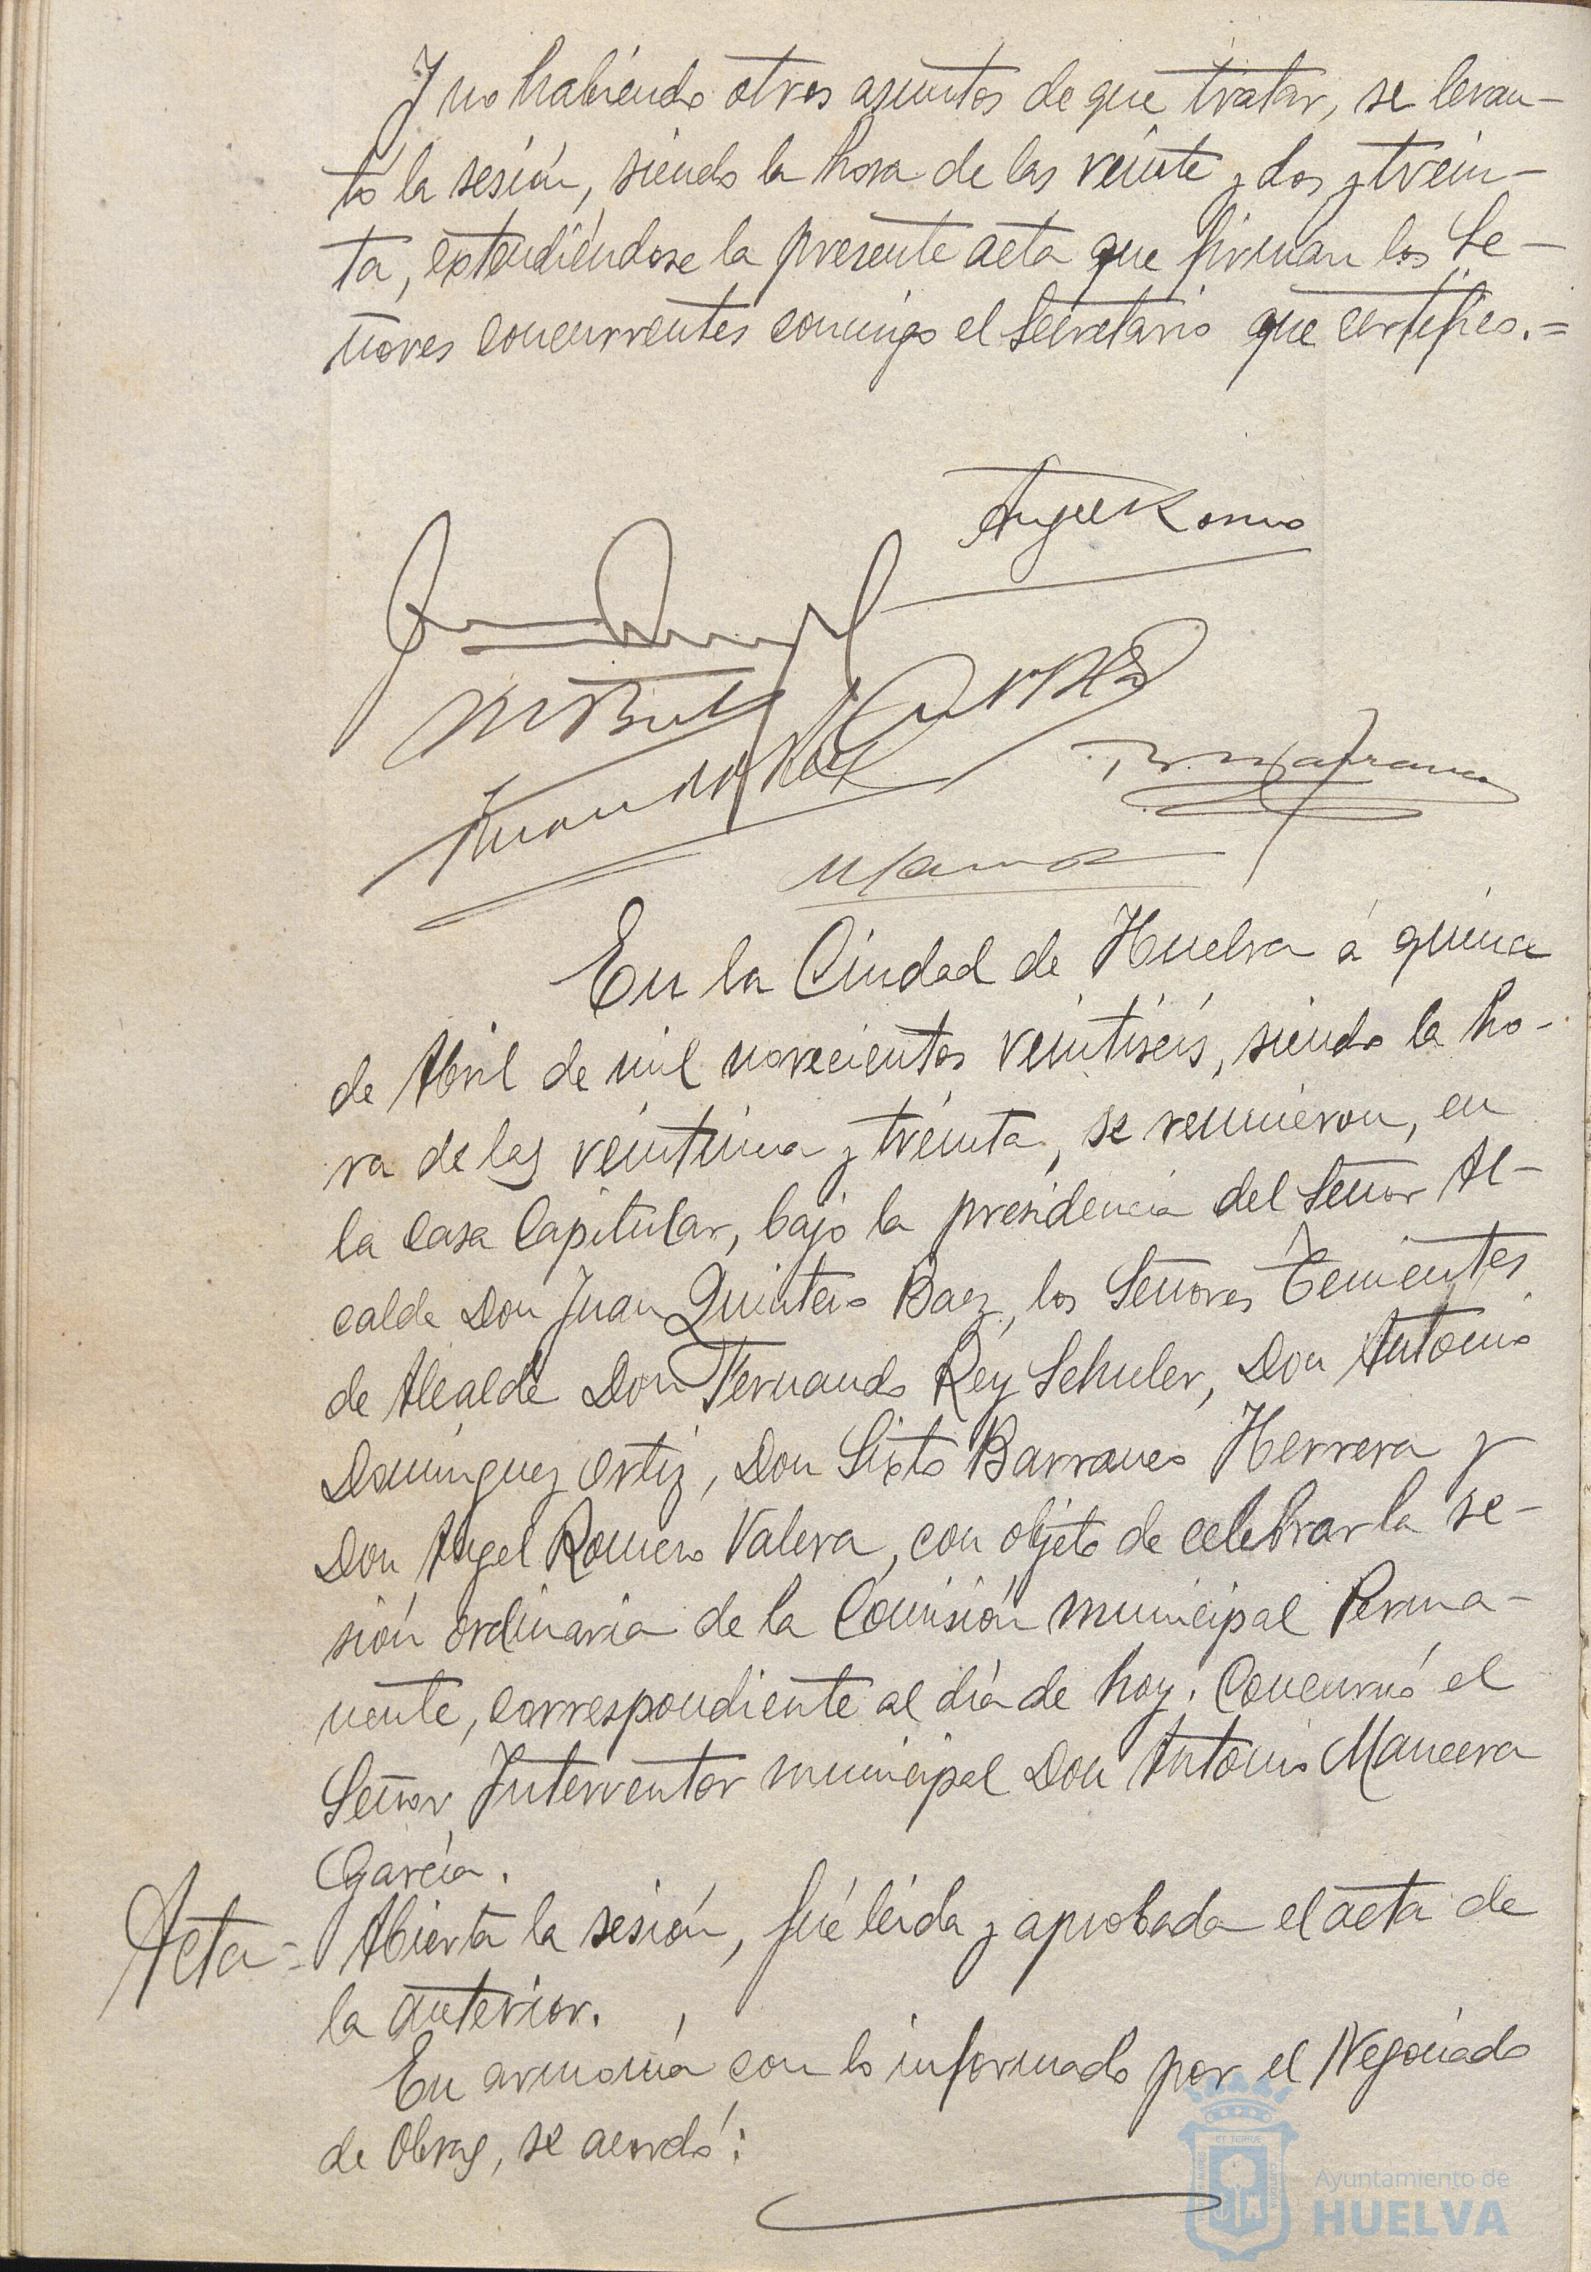 Y no habiendo otros asuntos de que tratar, se levan-
tó la sesión, siendo la hora de las veinte y dos y trein-
ta, extendiéndose la presente acta que firman los Se-
ñores concurrentes conmigo el Secretario que certifico.=
Angel Romero
En la Ciudad de Huelva á quince
de Abril de mil novecientos veintiseis, siendo la ho-
ra de las veintiuna y treinta, se reunieron, en
la Casa Capitular, bajo la presidencia del Señor Al-
calde Don Juan Quintero Baez, los Señores Tenientes
de Alcalde Don Fernando Rey Schuler, Don Antonio
Dominguez Ortiz, Don Sixto Barranco Herrera y
Don Angel Romero Valera, con objeto de celebrar la se-
sión ordinaria de la Comisión municipal Perma-
nente, correspondiente al día de hoy. Concurrió el
Señor Interventor municipal Don Antonio Mancera
García.
Acta = Abierta la sesión, fué leida y aprobada el acta de
la anterior.
En armonía con lo informado por el Negociado
de Obras, se acordó:
Ayuntamiento de
HUELVA